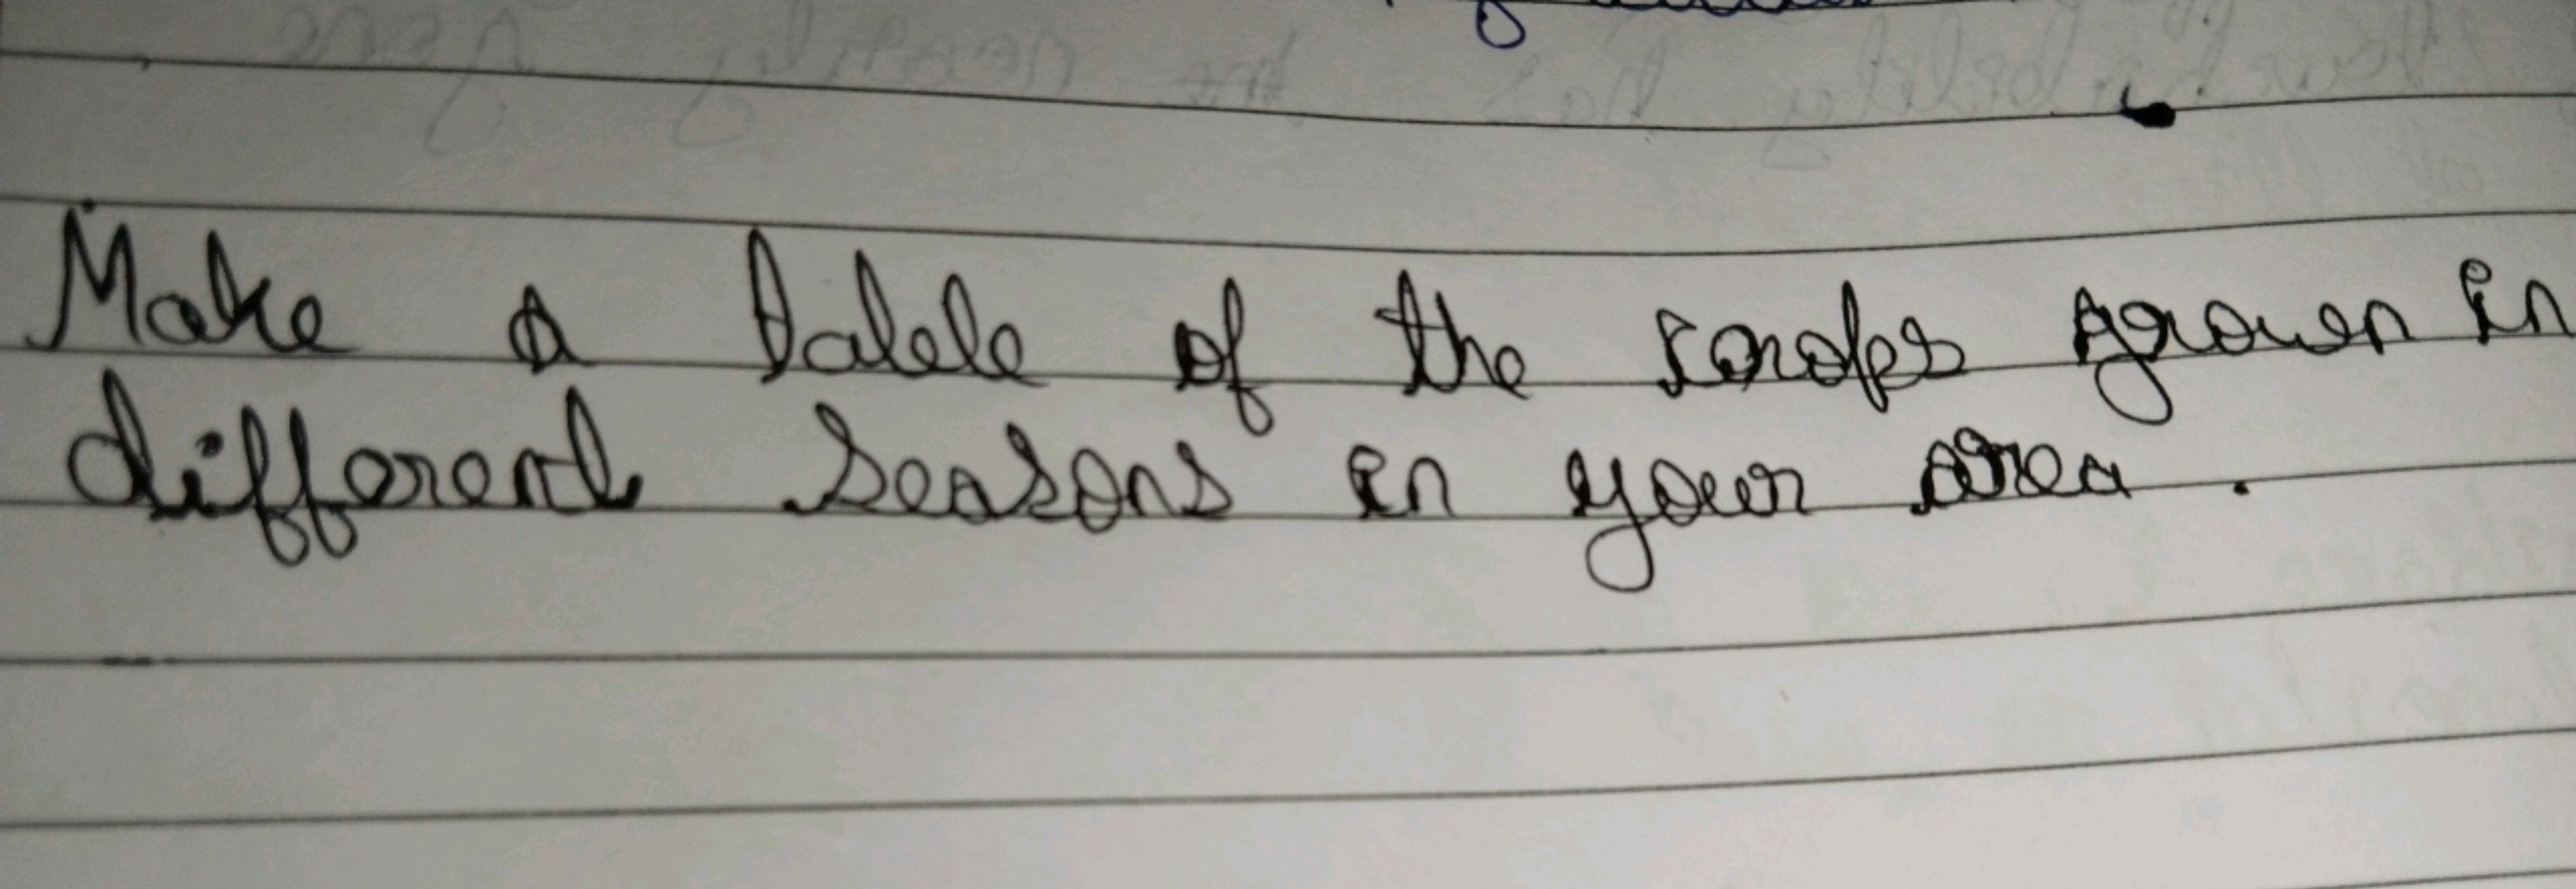 Make a table of the crops grown in
different seasons in your area .